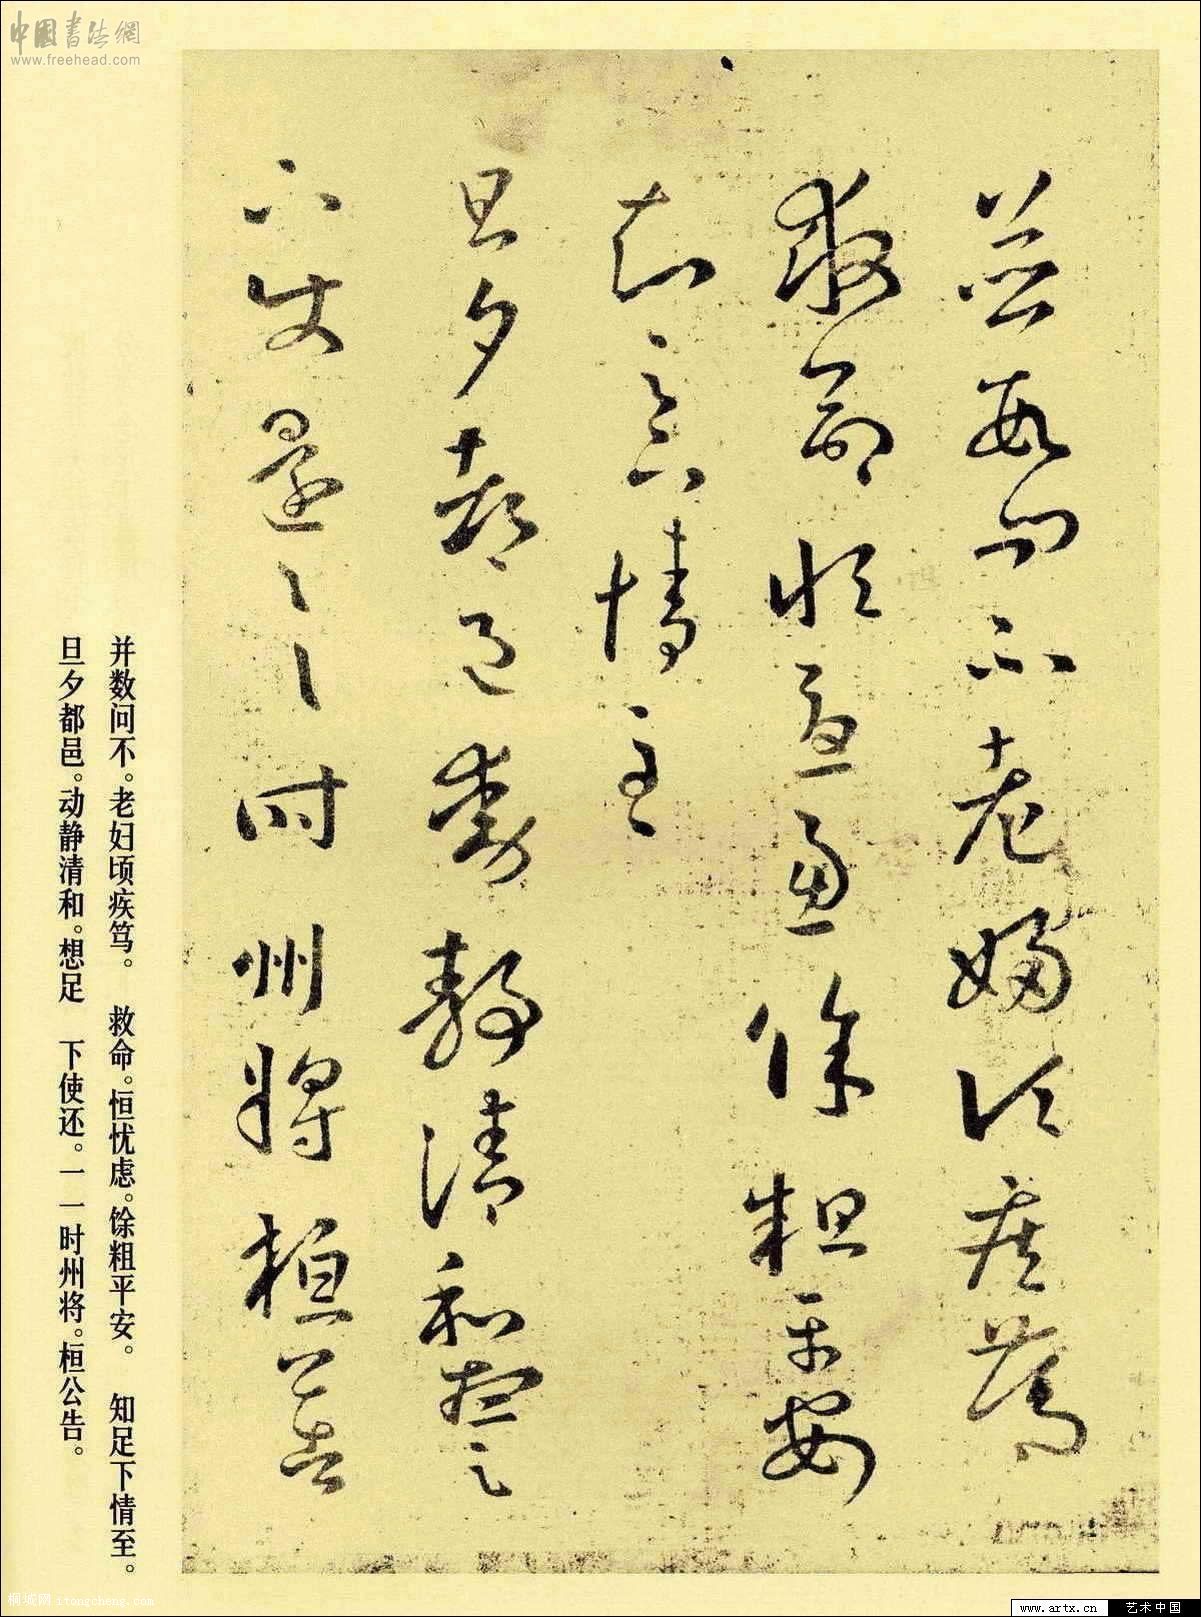 中国书法網
www.freehead.com
並数问不老妇顷疾笃
救命恒忧虑馀粗平安
知足下情至
旦夕都邑动静清和想足
下使还一一时州将桓公告
并数问不。老妇顷疾笃。 救命。恒忧虑。馀粗平安。 知足下情至。
旦夕都邑。动静清和。想足 下使还。一一时州将。桓公告。
桐城网 itongcheng.com
www.artx.cn 艺术中国